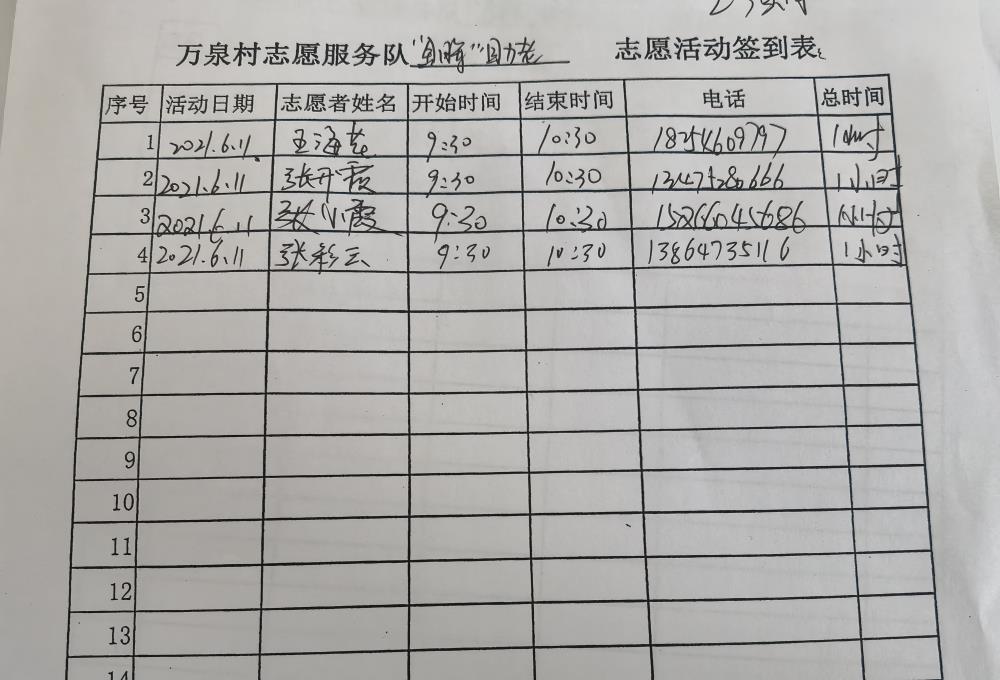 万泉村志愿服务队 志愿活动签到表
序号 活动日期 志愿者姓名 开始时间 结束时间 电话 总时间
1 2021.6.11. 王海花 9:30 10:30 18254609797 1小时
2 2021.6.11 张开霞 9:30 10:30 1小时
3 2021.6.11 张小霞 9:30 10:30 15266045686 1小时
4 2021.6.11 张彩云 9:30 10:30 13864735116 1小时
5
6
7
8
9
10
11
12
13
14